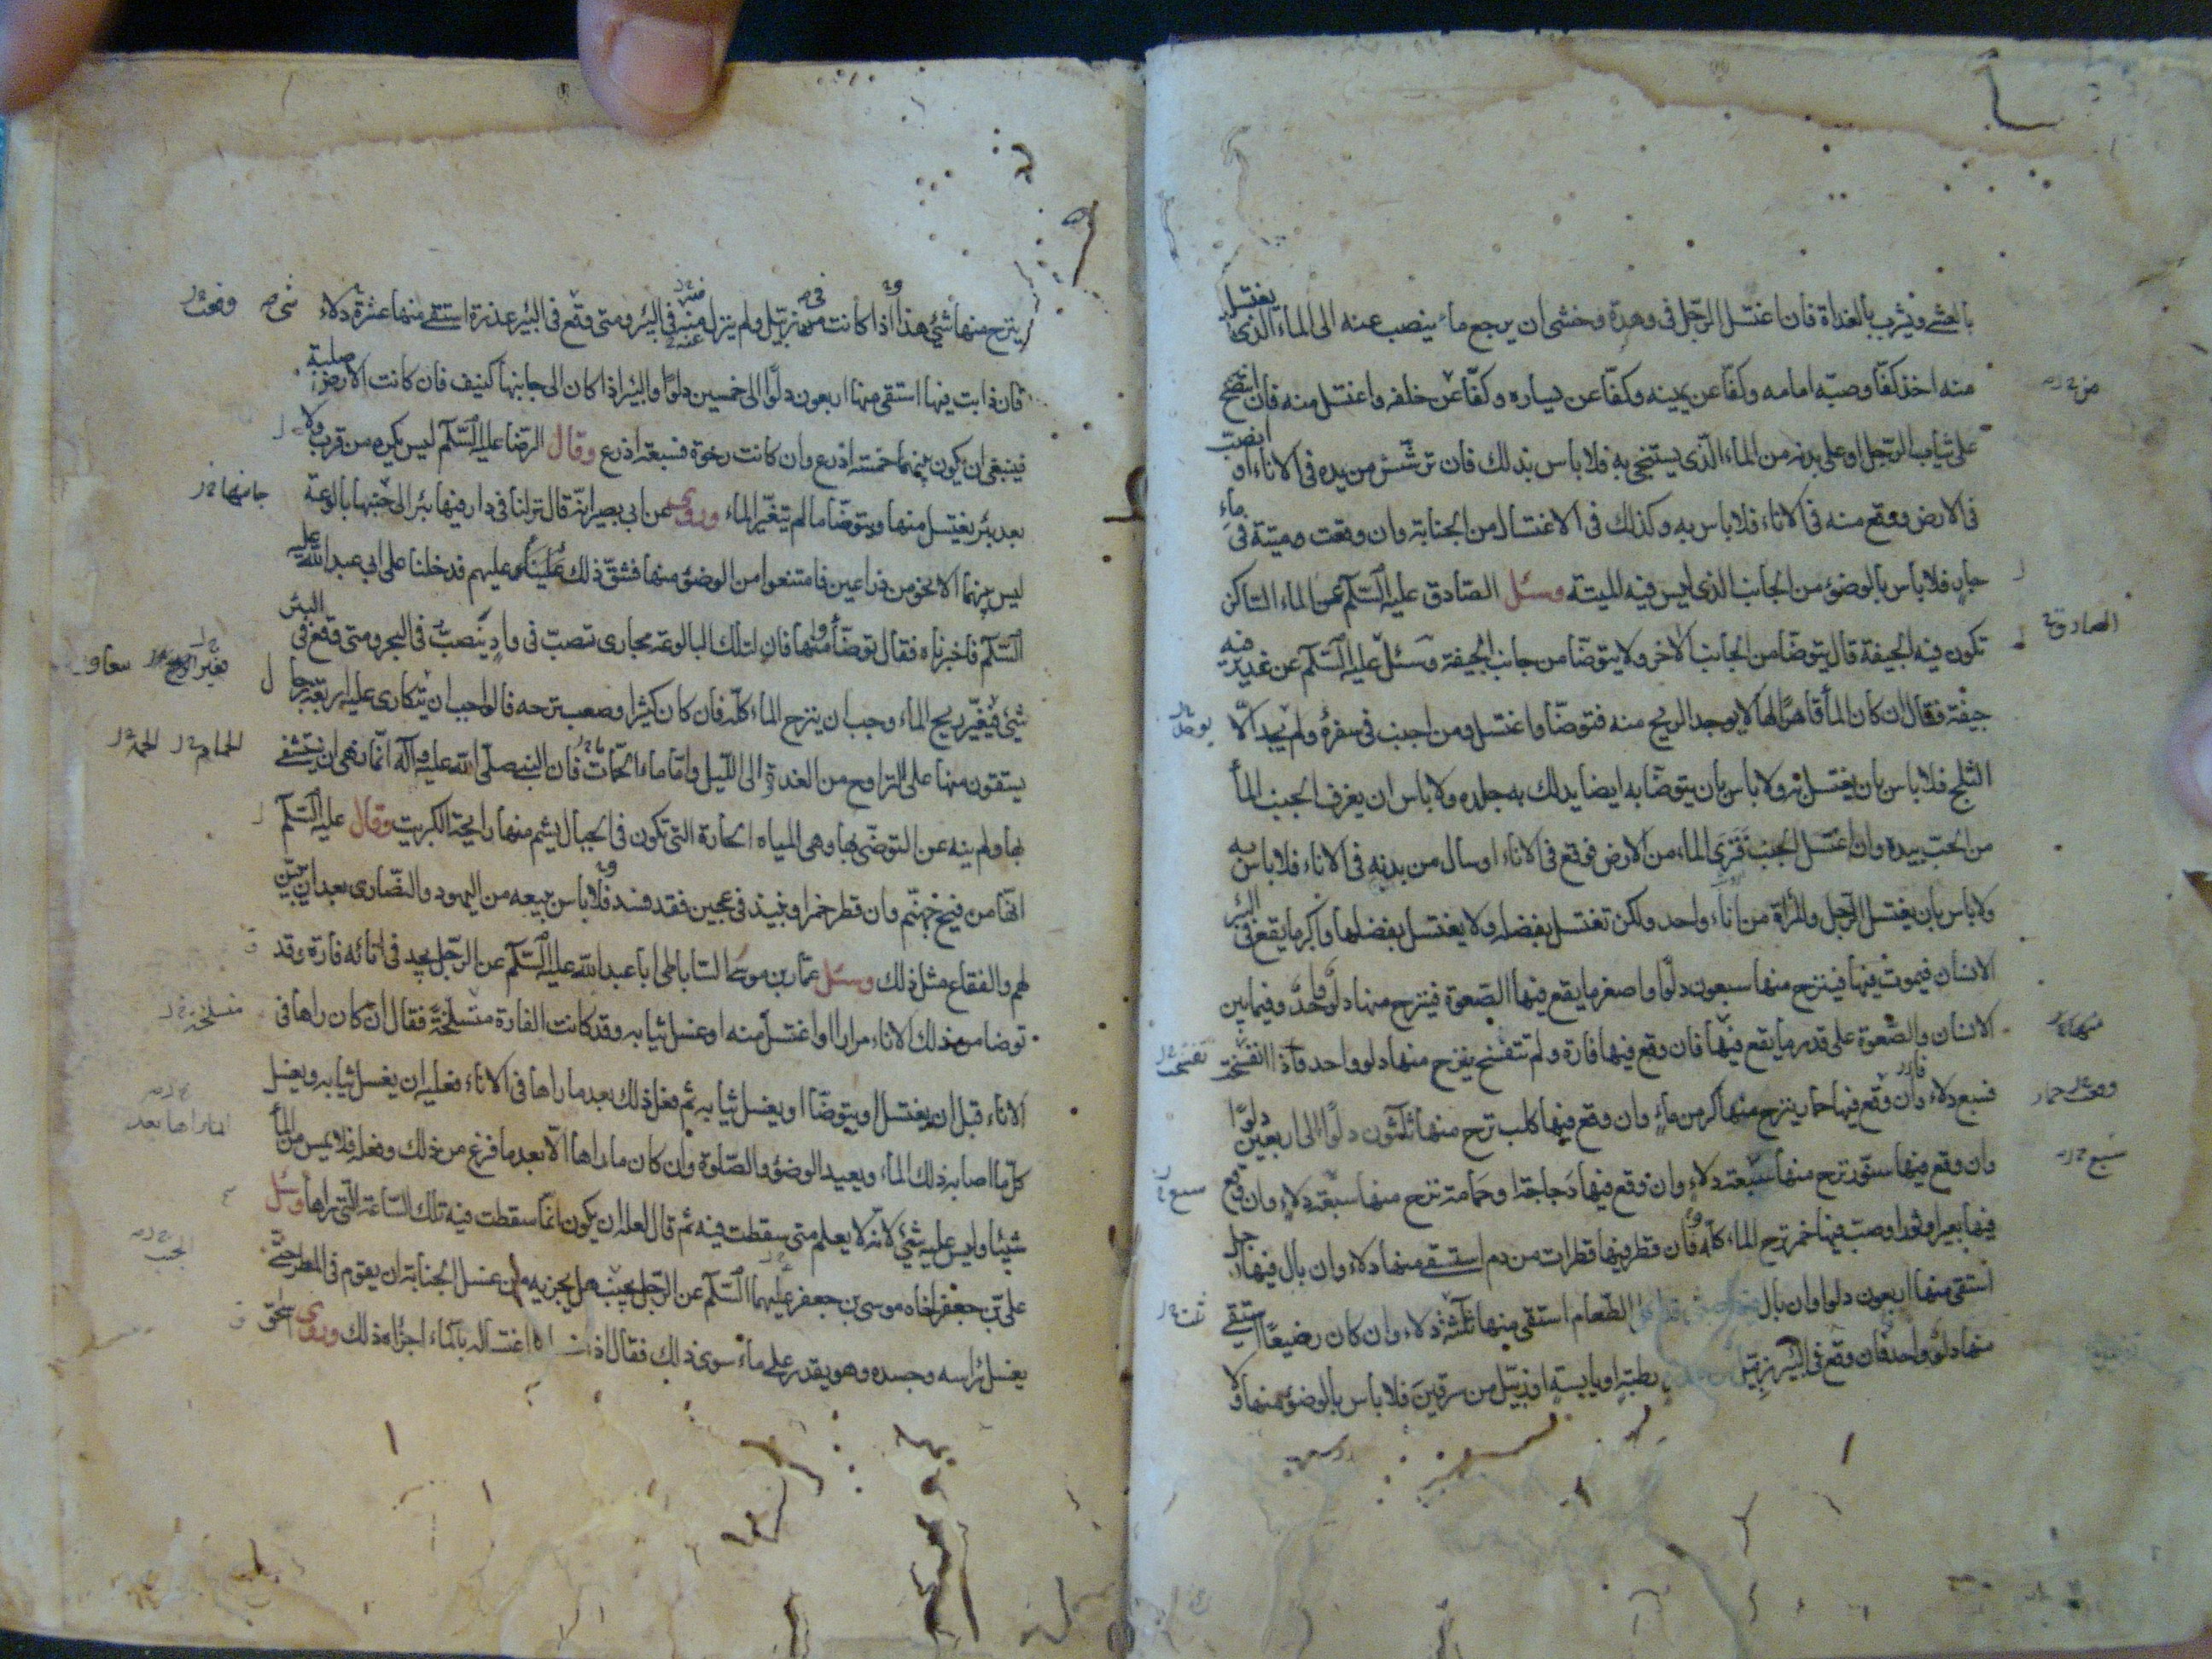 بالعشي ويشرب بالغداة فان اغتسل الرجل في وهدة وخشي ان يرجع ماء ينصب عنه الى الماء الذي يغتسل
منه اخذ كفا وصبه امامه وكفا عن يمينه وكفا عن يساره وكفا عن خلفه واغتسل منه فان انتضح
على ثياب الرجل او على بدنه من الماء الذي يستنجي به فلا باس بذلك فان ترشش من يده في الاناء او انصب
في الارض فوقع منه في الاناء فلا باس به وكذلك في الاغتسال من الجنابة وان وقعت ميتة في ماء
جار فلا باس بالوضوء من الجانب الذي ليس فيه الميتة وسئل الصادق عليه السلام عن الماء الساكن
تكون فيه الجيفة قال يتوضا من الجانب الاخر ولا يتوضا من جانب الجيفة وسئل عليه السلام عن غدير فيه
جيفة فقال ان كان الماء قاهرا لها لا يوجد الريح منه فتوضا واغتسل ومن اجنب في سفره ولم يجد الا
الثلج فلا باس بان يغتسل به ولا باس بان يتوضا به ايضا يدلك به جلده ولا باس ان يغرف الجنب الماء
من الحب بيده وان اغتسل الجنب فنزى الماء من الارض فوقع في الاناء او سال من بدنه في الاناء فلا باس به
ولا باس بان يغتسل الرجل والمراة من اناء واحد ولكن تغتسل بفضله ولا يغتسل بفضلها واكبر ما يقع في البئر
الانسان فيموت فيها فينزح منها سبعون دلوا واصغر ما يقع فيها الصعوة فينزح منها دلو واحد وفيما بين
الانسان والصعوة على قدر ما يقع فيها فان وقع فيها فارة ولم تتفسخ ينزح منها دلو واحد واذا انفسخت
فسبع دلاء وان وقع فيها حمار ينزح منها كر من ماء وان وقع فيها كلب نزح منها ثلثون دلوا الى اربعين دلوا
وان وقع فيها سنور نزح منها سبعة دلاء وان وقع فيها دجاجة او حمامة نزح منها سبعة دلاء وان وقع
فيها بعير او ثور او صب فيها خمر نزح الماء كله فان قطر فيها قطرات من دم استقي منها دلاء وان بال فيها رجل
استقي منها اربعون دلوا وان بال الطعام استقي منها ثلثة دلاء وان كان رضيعا استقي
منها دلو واحد فان وقع في البئر زبيل رطبة او يابسة او زبيل من سرقين فلا باس بالوضوء منها ولا
ينزح منها شيء هذا اذا كانت في زبيل ولم ينزل منه في البئر ومتى وقع في البئر عذرة استقي منها عشرة دلاء
فان ذابت فيها استقي منها اربعون دلوا الى خمسين دلوا والبئر اذا كان الى جانبها كنيف فان كانت الارض صلبة
فينبغي ان يكون بينهما خمسة اذرع وان كانت رخوة فسبعة اذرع وقال الرضا عليه السلام ليس يكره من قرب ولا
بعد بئر يغتسل منها ويتوضا ما لم يتغير الماء وروي عن ابي بصير انه قال نزلنا في دار فيها بئر الى جنبها بالوعة
ليس بينهما الا نحو من ذراعين فامتنعوا من الوضوء منها فشق ذلك عليهم فدخلنا على ابي عبد الله عليه
السلام فاخبرناه فقال توضأوا منها فان لتلك البالوعة مجاري تصب في واد ينصب في البحر ومتى وقع في البئر
شيء فيغير ريح الماء وجب ان ينزح الماء كله فان كان كثيرا وصعب نزحه فالواجب ان يتكارى عليه اربعة رجال
يستقون منها على التراوح من الغدوة الى الليل واما ماء الحمات فان النبي صلى الله عليه وآله انما نهى ان يستشفى
بها ولم ينه عن التوضي بها وهي المياه الحارة التي تكون في الجبال يشم منها رايحة الكبريت وقال عليه السلم
انها من فيح جهنم وان قطر خمر او نبيذ في عجين فقد فسد فلا باس ببيعه من اليهود والنصارى بعد ان تبين
لهم والفقاع مثل ذلك وسئل عمار بن موسى الساباطي ابا عبد الله عليه السلم عن الرجل يجد في انائه فارة وقد
توضا من ذلك الاناء مرارا او اغتسل منه او غسل ثيابه وقد كانت الفارة متسلخة فقال ان كان راها في
الاناء قبل ان يغتسل او يتوضا او يغسل ثيابه ثم فعل ذلك بعد ما راها في الاناء فعليه ان يغسل ثيابه ويغسل
كل ما اصابه ذلك الماء ويعيد الوضوء والصلوة وان كان ما راها الا بعد ما فرغ من ذلك وفعله فلا يمس من الماء
شيئا وليس عليه شيء لانه لا يعلم متى سقطت فيه ثم قال لعله ان يكون انما سقطت فيه تلك الساعة التي راها وسئل
علي بن جعفر اخاه موسى بن جعفر عليهما السلم عن الرجل يجنب هل يجزيه من غسل الجنابة ان يقوم في المطر حتى
يغسل راسه وجسده وهو يقدر على ماء سوى ذلك فقال اغتساله بالماء اجزاه ذلك وروى اسحق